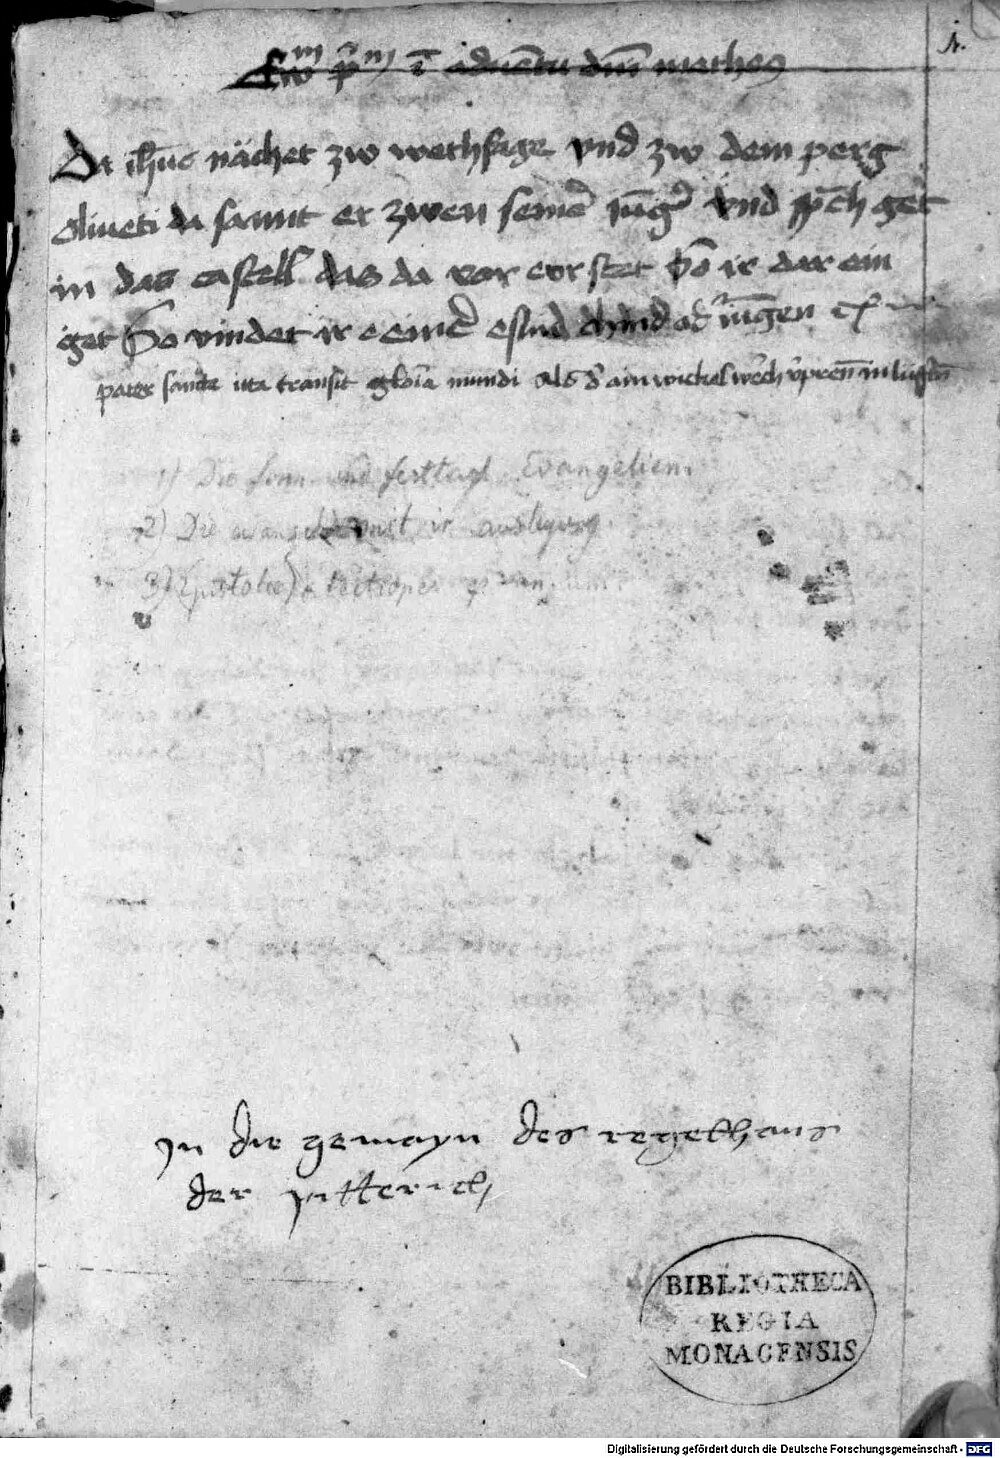 1.
Ewm pm ī adventu dnī matheo
Da ihūs nächet zw wethfage vnd zw dem perg
oliueti da sannt er zwen seiner iūger vnd sprach get
in das castell das da vor evr stet So ir dar ein
get So vindet ir eine eslin chind ad iūngen
pater sancte ita transit gloria mundi als ain wickel werch
1) Die sonn und festtagl. Evangelien.
2) Die evangelien mit ir auslegung
3) Epistolae lectiones
In die gemayn des regelhaus
der pitterich
BIBLIOTHECA
REGIA
MONACENSIS
Digitalisierung gefördert durch die Deutsche Forschungsgemeinschaft - DFG